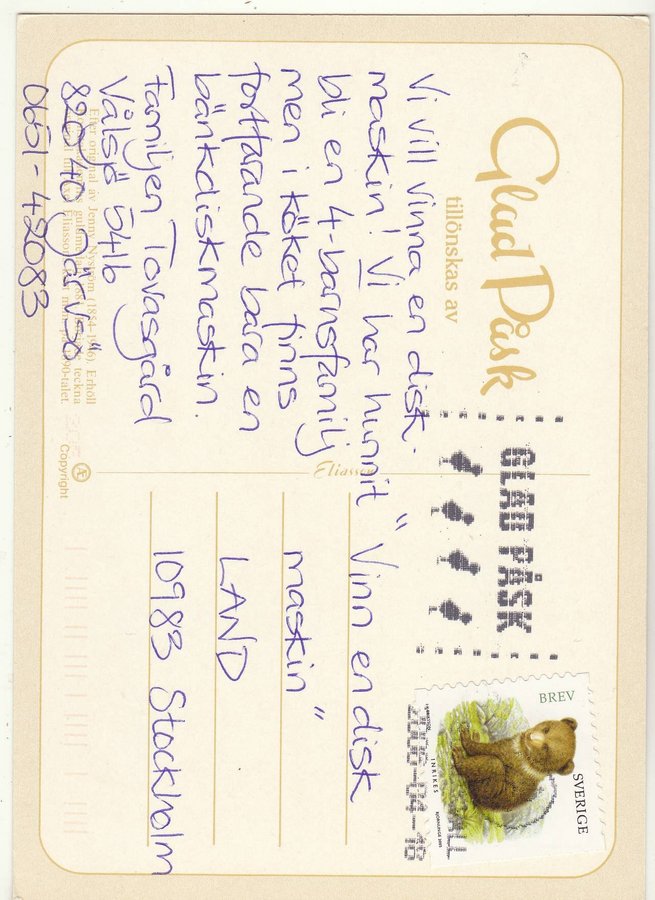 Glad Påsk
tillönskas av
Vi vill vinna en disk.
maskin! Vi har hunnit
bli en 4-barnsfamilj
men i köket finns
fortfarande bara en
bänkdiskmaskin.
Familjen Tovasgård
Vålsjö 5416
820 40 Järvsö
0651-42083
Efter original av Jenny Nyström (1854-1946). Erhöll
Eliasson
Copyright
Æ
GLAD PÅSK
BREV
SVERIGE
INRIKES
"Vinn en disk
maskin"
LAND
10983 Stockholm